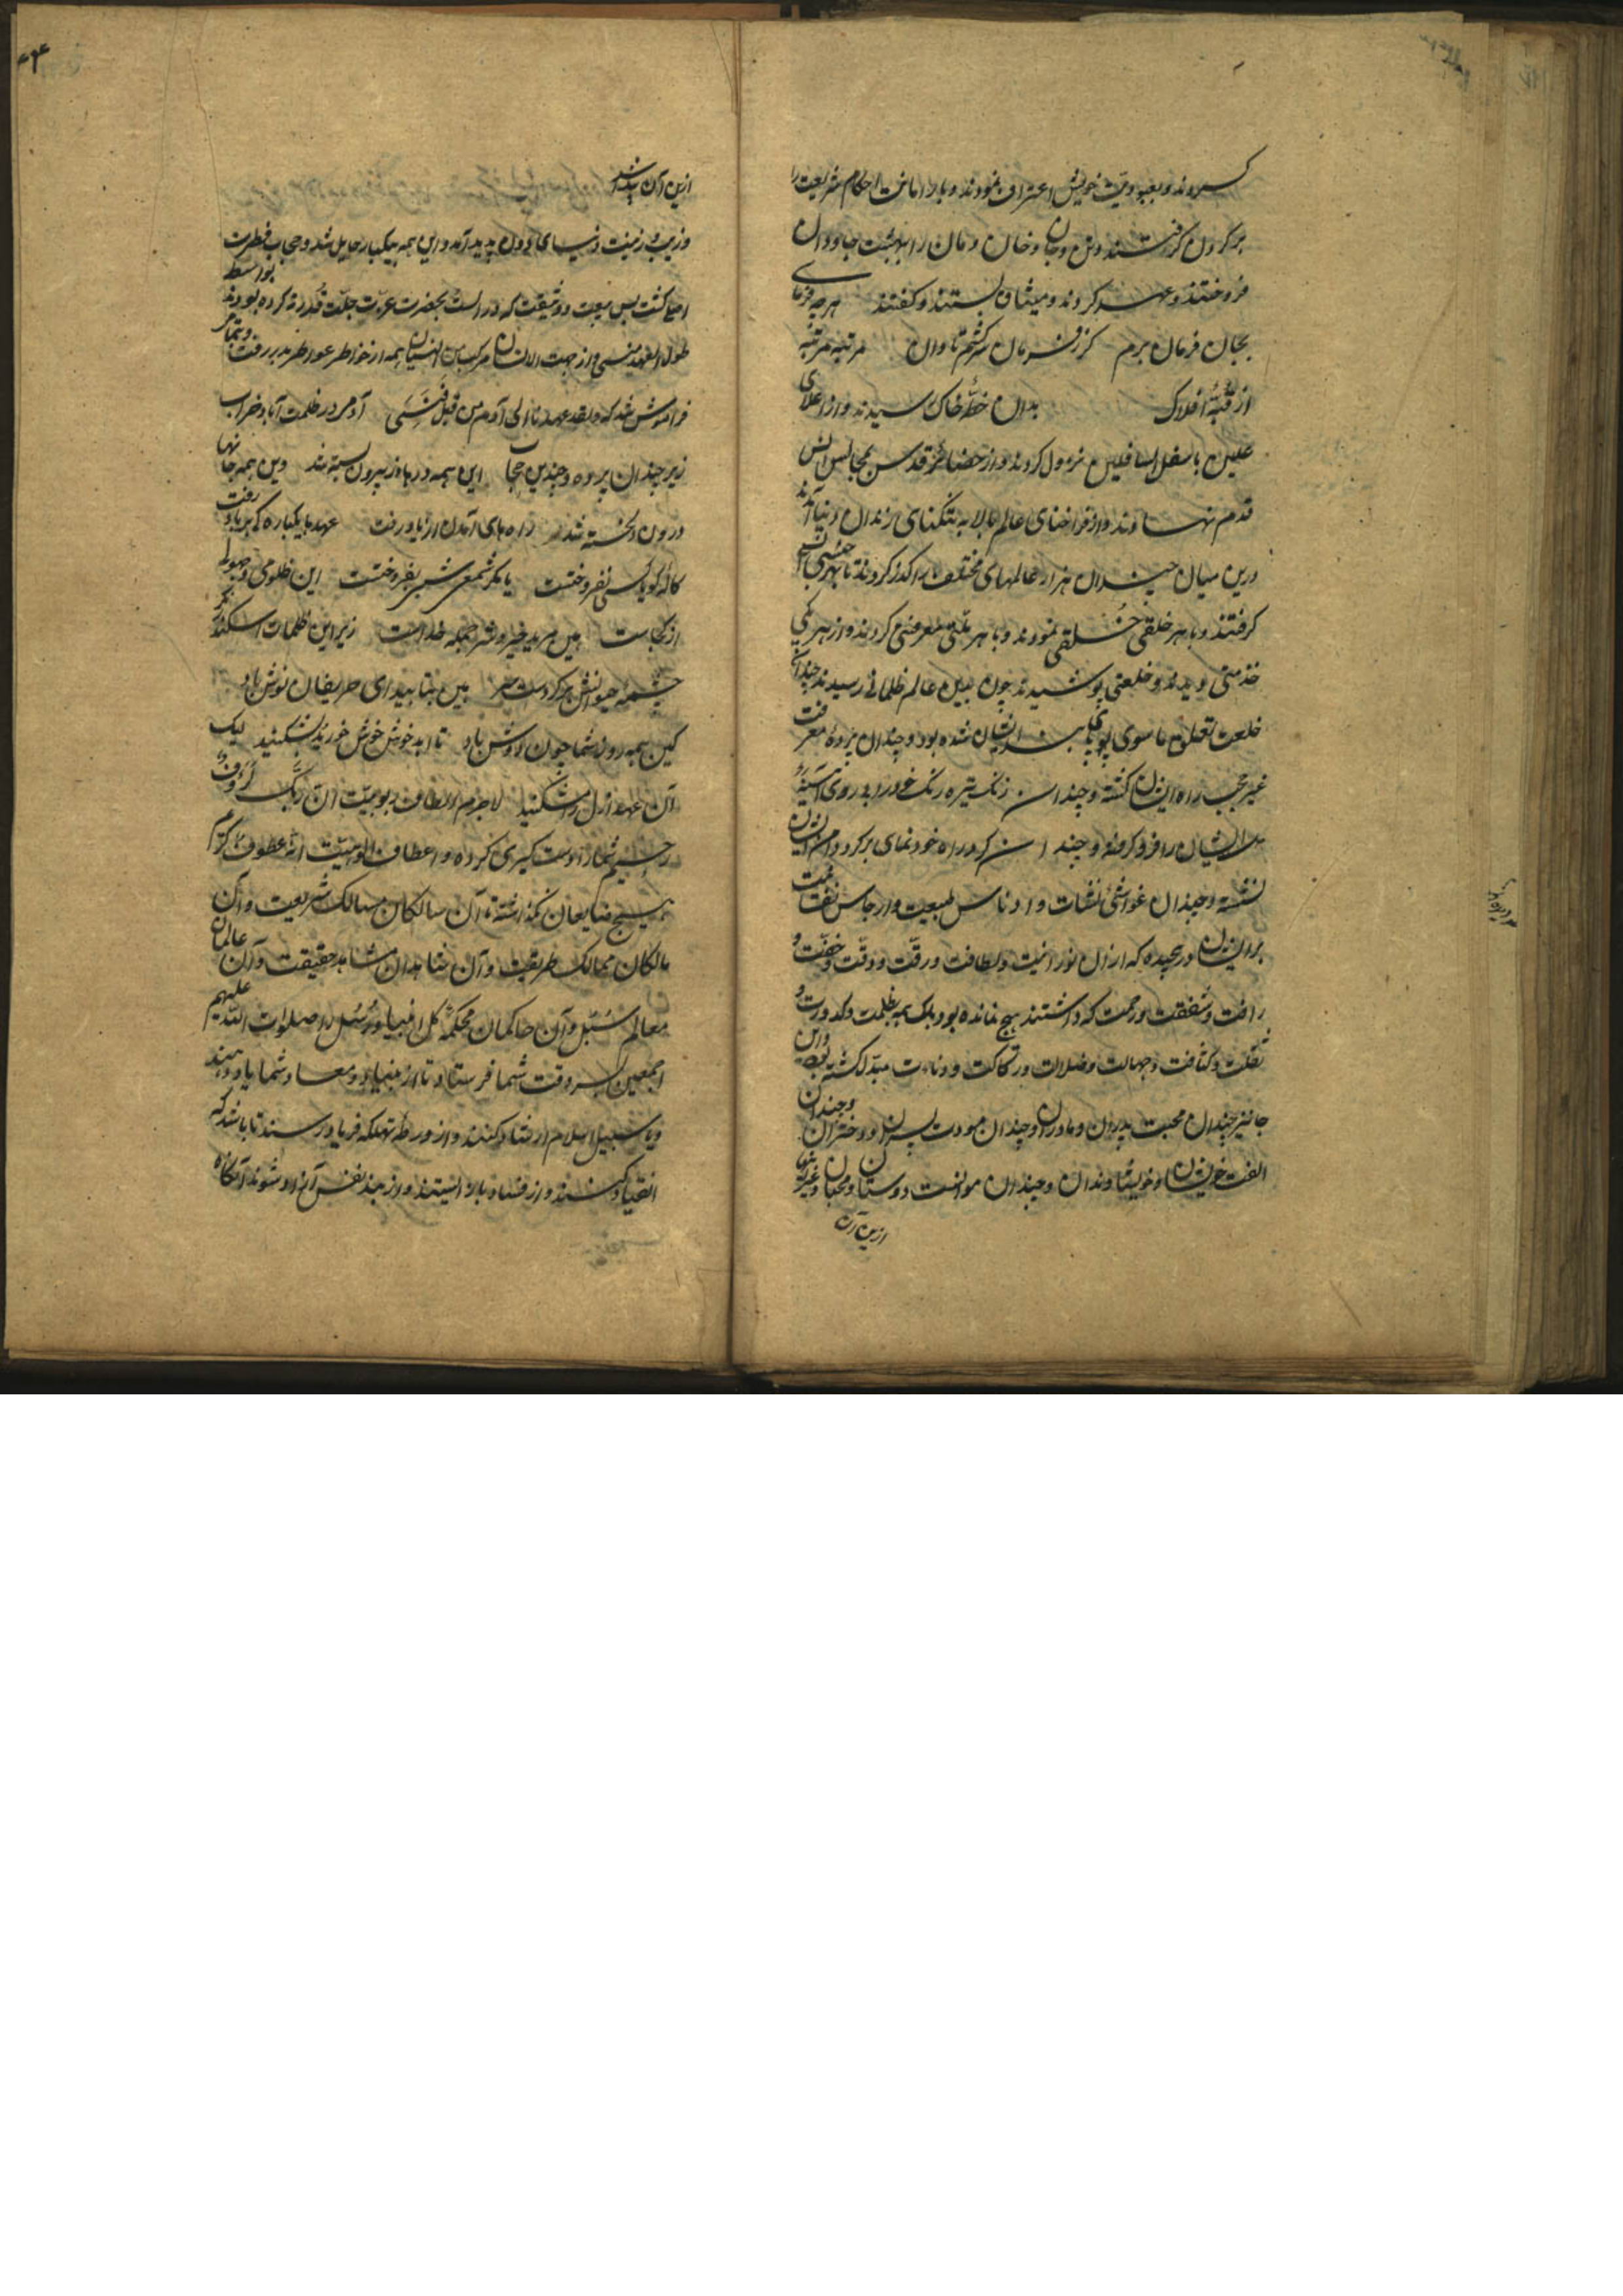 کردند و بعبودیت خویش اعتراف نمودند و بار امانت احکام شریعت را
بر کردن گرفتند و تن و جان و خان و مان را ببهشت جاودان
فروختند و عهد کردند و میثاق بستند و گفتند هرچه فرمای
بجان فرمان برم گر ز فرمان سر کشم تاوان مرتبه مرتبه
از قبهٔ افلاک بدان خطهٔ خاک رسیدند و از اعلای
علیین باسفل السافلین نزول کردند و از حضائر قدس بمجالس انس
قدم نهادند و از فراخنای عالم بالا به تنکنای زندان دنیا آمدند
درین میان چندان هزار عالمهای مختلف را کذر کردند تا بهر جنسی انس
گرفتند و با هر خلقی خلقی نمودند و با هر یکی معرفتی کردند و از هر یکی
خدمتی دیدند و خلعتی پوشیدند چون بدین عالم ظلمانی رسیدند چندان
خلعت تعلق ماسوی پای بند ایشان شده بود و چندان پرده معرفت
غیر حجب راه ایشان کشته و چندان زنک تیره رنک خود را بر روی آینهٔ
دل ایشان را فرو کرفته و چندان کرد راه خودنمای بر کرد دامن ایشان
نشسته و چندان غواشی نشات و ادناس طبیعت و ارجاس
بر ایشان در پیچیده که از آن نورانیت و لطافت و رقت و دقت و خفت و
رافت و شفقت و رحمت که داشتند هیچ نمانده بود بلک همه بظلمت و کدورت و
ثقلت و کثافت و جهالت و ضلالت و رکاکت و دناءت مبدل کشته بود و این
جا نیز چندان محبت پدران و مادران و چندان مودت پسران و دختران و چندان
الفت خویشان و خویشاوندان و چندان موانست دوستان و محبان و غیرهم
ازین آن
ازین آن پیدا شد
و زیب و زینت دنیای دون پدید آمد و این همه بیکبار حایل شد و حجاب فطرت
اصلی کشت پس بیعت و وثیقت که در الست بحضرت عزت جلت قدرته کرده بودند بواسطه
طول العهد منسی و از جهت الانسان مرکب من النسیان همه از خواطر عواطر بدر رفت و بتمامی
فراموش شد که و لقد عهدنا الی آدم من قبل فنسی آدمی در ظلمت آباد خراب
زیر چندان پرده و چندین حجاب این همه درها ز بیرون بسته شد وین همه جانها
درون دلخسته شد راه های آمدن از یاد رفت عهدها یکباره کی بر باد رفت
کاله کو با کسی نفروخت یا مکر شمعی بشیری نفروخت این ظلومی و جهولی
از کجاست هین مرید خیر و شر جمله خداست زیر این ظلمات اسکندر نکر
چشمه حیوانش بر کردست سر هین بتابید ای حریفان نوش باد
کین همه رو شما چون روش باد تا ابد خوش خوش خورید نشکنید لیک
آن عهد ازل را مشکنید لاجرم الطاف ربوبیت ان ربک لرؤف
رحیم شما را دست کیری کرده و اعطاف الوهیت انه عطوف کریم
هیچ ضایعتان نکذاشته آن سالکان مسالک شریعت و آن
مالکان ممالک طریقت و آن شاهدان مشاهد حقیقت و آن عالمان
معالم سبل و آن حاکمان محکمه کل انبیا و رسل را صلوات الله علیهم
اجمعین بسر وقت شما فرستاد تا از مبداء و معاد شما یاد دهند
و با سبیل اسلام ارشاد کنند و از ورطهٔ تهلکه فریاد رسند تا باشد که
انقیاد کنند و از فساد باز ایستند و از بند نفس آزاد شوند آنکاه